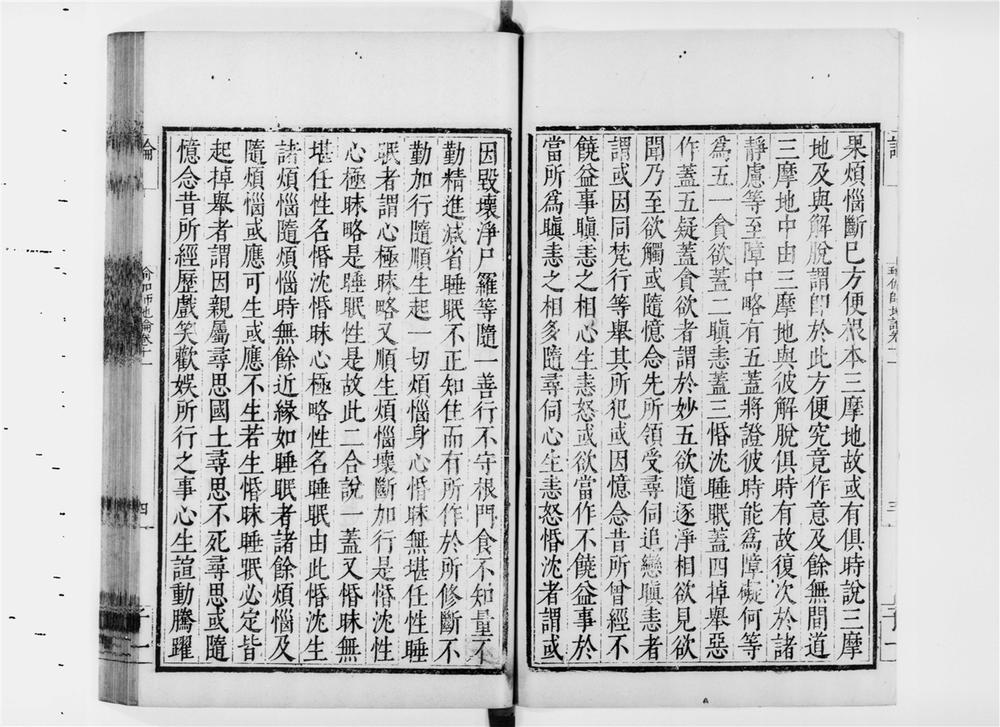 果煩惱斷已方便根本三摩地故或有俱時說三摩
地及與解脫謂卽於此方便究竟作意及餘無間道
三摩地中由三摩地與彼解脫俱時有故復次於諸
靜慮等至障中略有五蓋將證彼時能為障礙何等
為五一貪欲蓋二瞋恚蓋三惛沈睡眠蓋四掉舉惡
作蓋五疑蓋貪欲者謂於妙五欲隨逐淨相欲見欲
聞乃至欲觸或隨憶念先所領受尋伺追戀瞋恚者
謂或因同梵行等舉其所犯或因憶念昔所曾經不
饒益事瞋恚之相心生恚怒或欲當作不饒益事於
當所為瞋恚之相多隨尋伺心生恚怒惛沈者謂或
因毀壞淨尸羅等隨一善行不守根門食不知量不
勤精進減省睡眠不正知住而有所作於所修斷不
勤加行隨順生起一切煩惱身心惛昧無堪任性睡
眠者謂心極昧略又順生煩惱壞斷加行是惛沈性
心極昧略是睡眠性是故此二合說一蓋又惛昧無
堪任性名惛沈惛昧心極略性名睡眠由此惛沈生
諸煩惱隨煩惱時無餘近緣如睡眠者諸餘煩惱及
隨煩惱或應可生或應不生若生惛昧睡眠必定皆
起掉舉者謂因親屬尋思國土尋思不死尋思或隨
憶念昔所經歷戲笑歡娛所行之事心生諠動騰躍